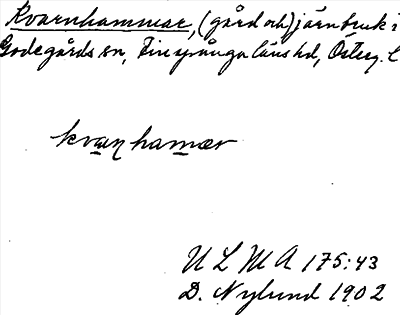 Kvarnhammar, (gård och) järnbruk i
Godegårds sn, Finspånga läns hd, Österg. l
kvaṉ hamær
ULMA 175:43
D. Nylund 1902